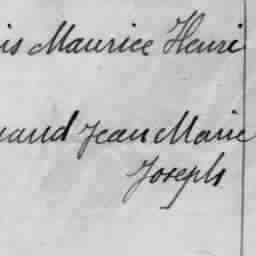 is Maurice Henri
and Jean Marie
Joseph